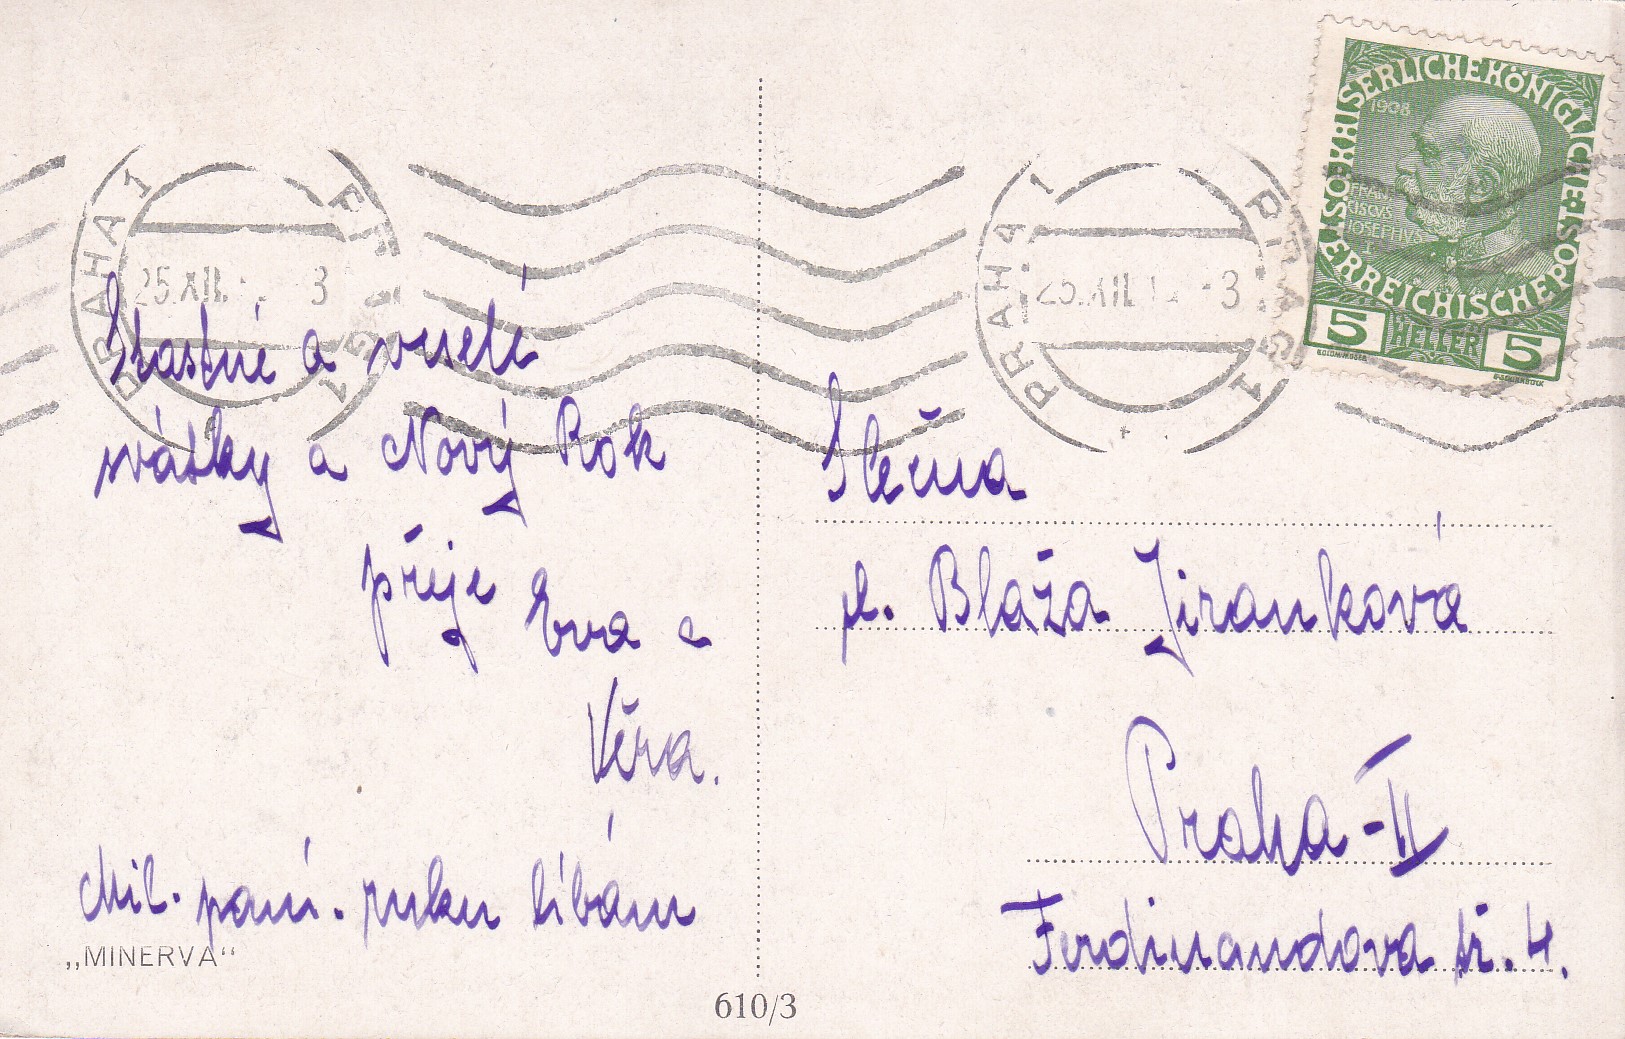 PRAHA 1 PRAG 1
25.XII. 3
PRAHA 1 PRAG 1
25.XII.12 -3
KAISERLICHEKÖNIGLICHE
ÖSTERREICHISCHEPOST
1908
FRAN
CISCVS
IOSEPHVS
I
5 HELLER 5
Šťastné a veselé
svátky a Nový Rok
přeje Eva a
Věra.
Mil. paní. ruku líbám
„MINERVA“
Slečna
sl. Blaža Jiranková
Praha-II
Ferdinandova tř. 4.
610/3